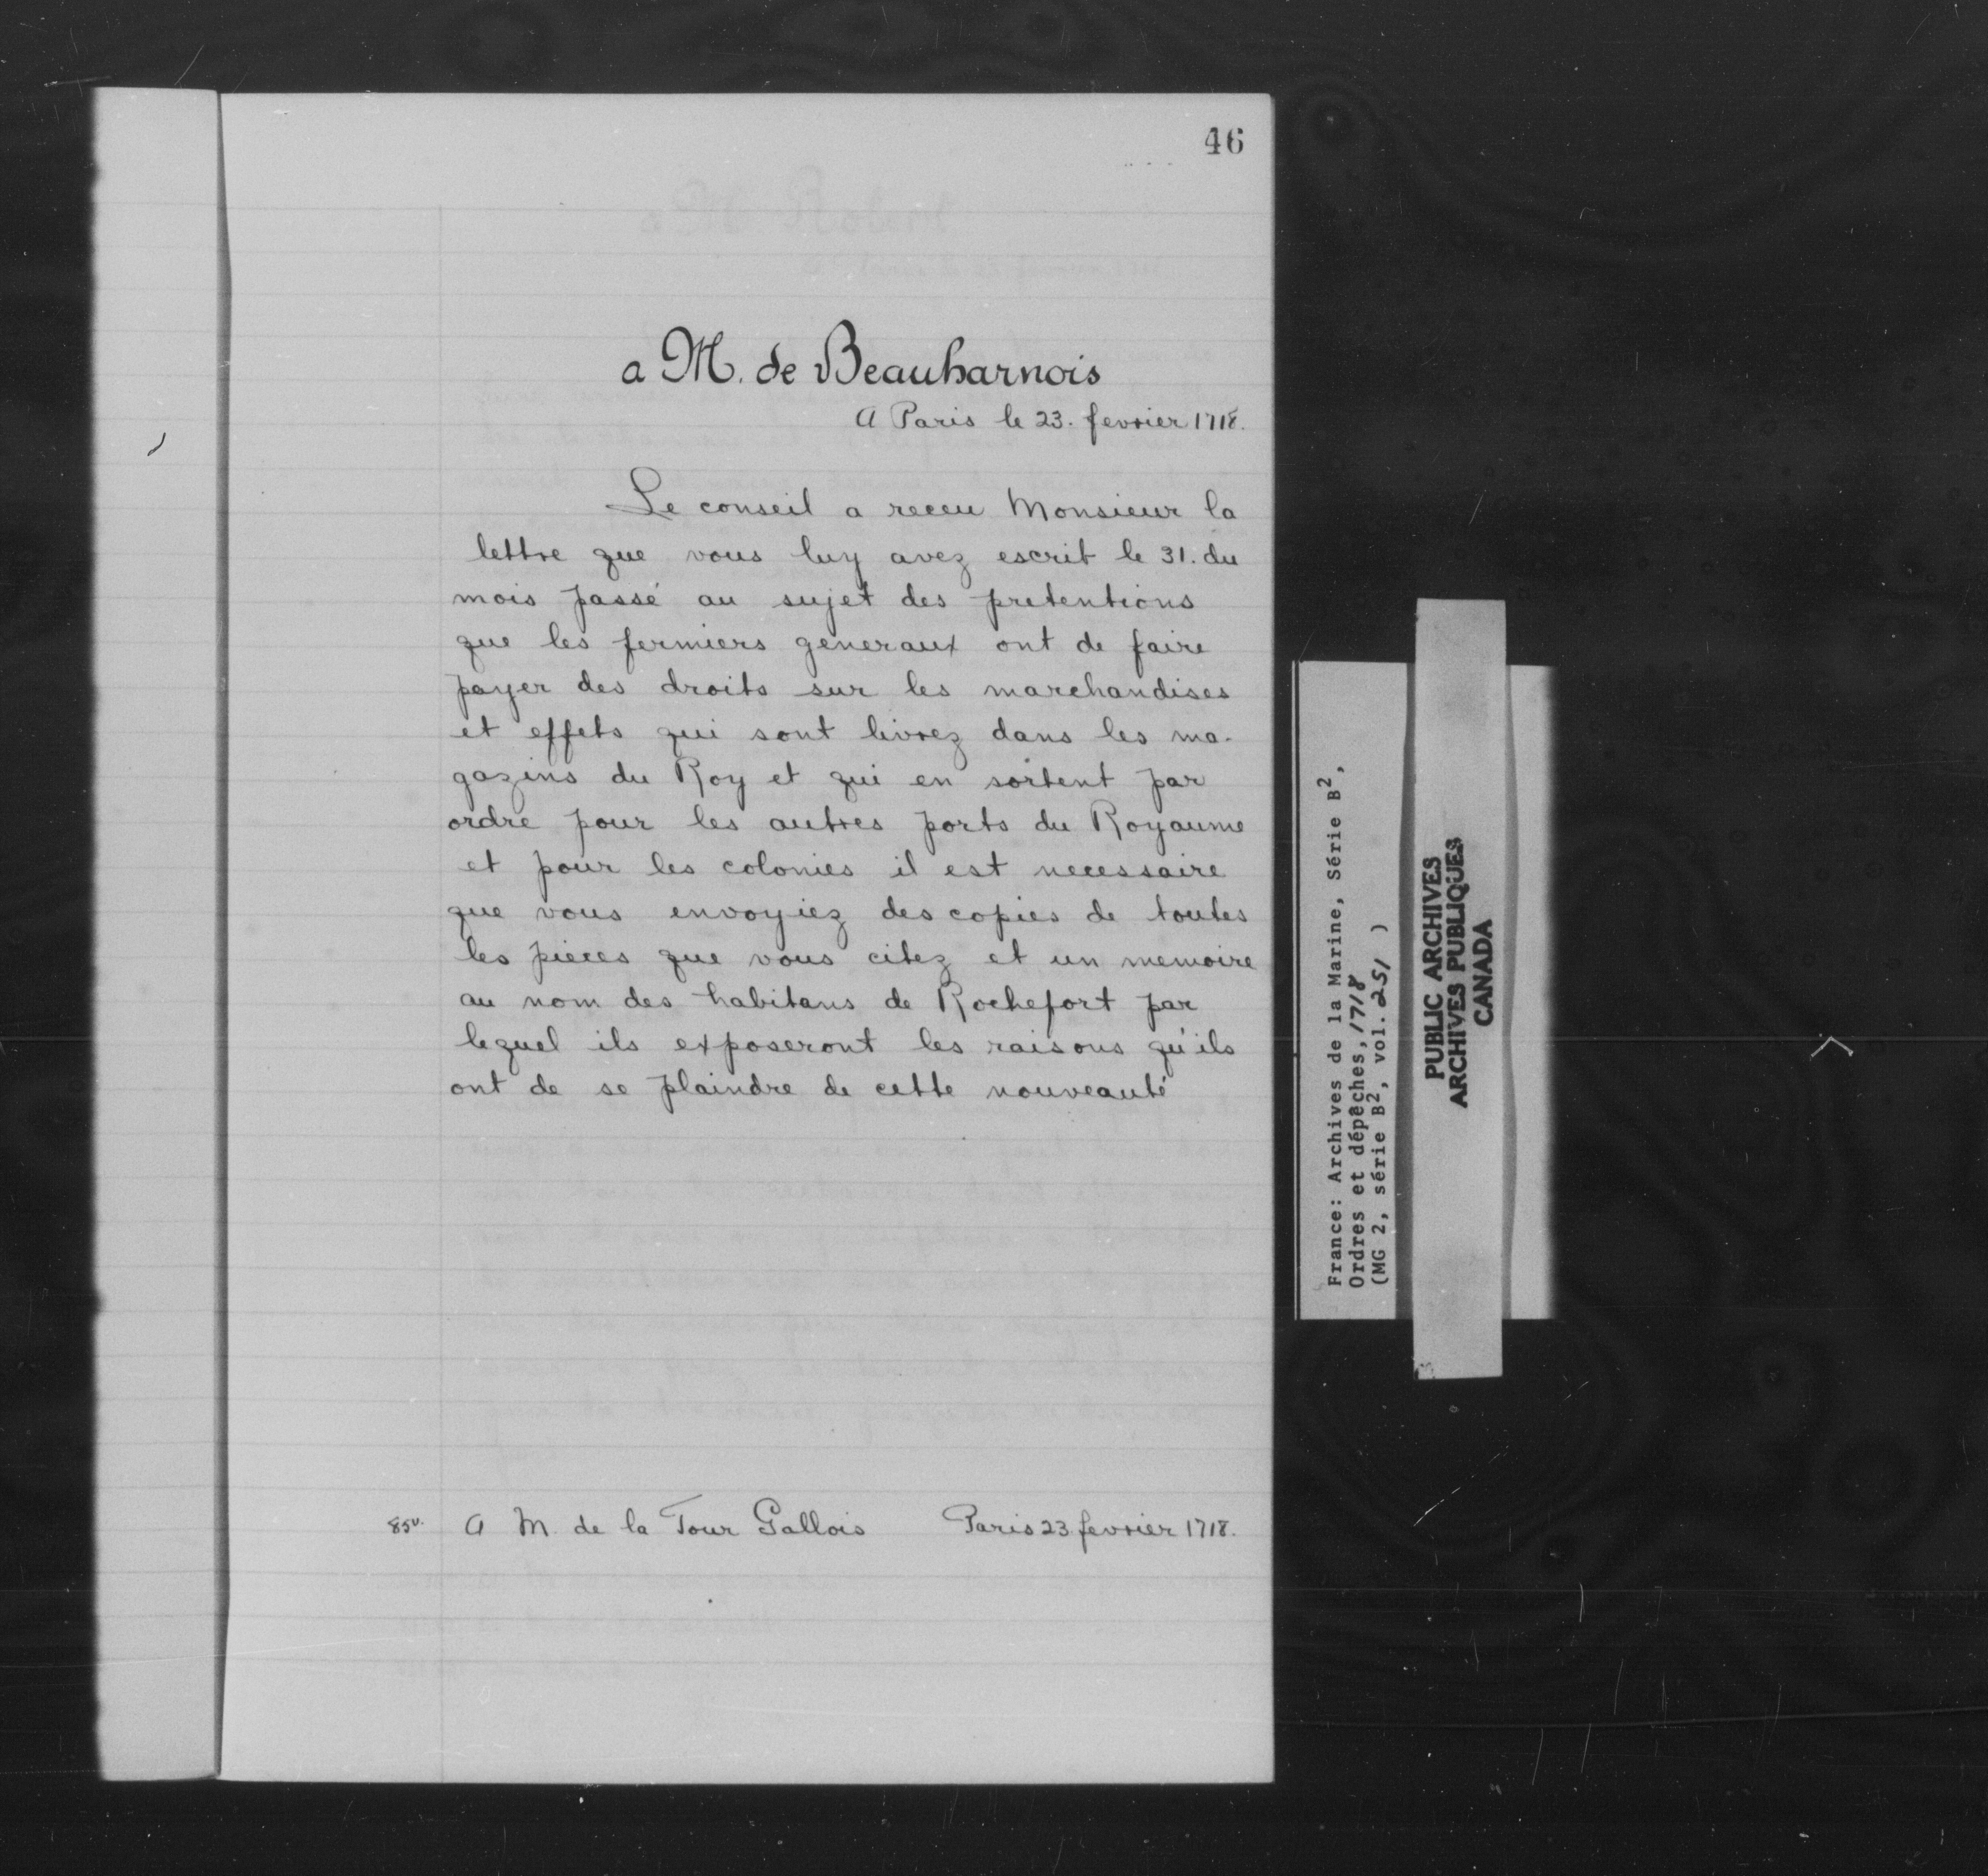 46
a M. de Beauharnois
A Paris le 23. fevrier 1718.
Le conseil a receu Monsieur la
lettre que vous luy avez escrit le 31. du
mois passé au sujet des pretentions
que les fermiers generaux ont de faire
payer des droits sur les marchandises
et effets qui sont livrez dans les ma-
gazins du Roy et qui en sortent par
ordre pour les autres ports du Royaume
et pour les colonies il est necessaire
que vous envoyiez des copies de toutes
les pieces que vous citez et un memoire
au nom des habitans de Rochefort par
lequel ils exposeront les raisons qu'ils
ont de se plaindre de cette nouveauté
85v. A M. de la Tour Gallois Paris 23 fevrier 1718.
France: Archives de la Marine, Série B2,
Ordres et dépêches, 1718
(MG 2, série B2, vol. 251 )
PUBLIC ARCHIVES
ARCHIVES PUBLIQUES
CANADA